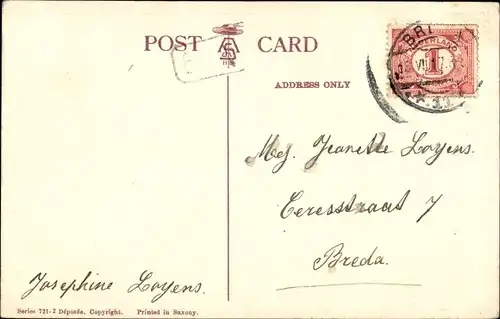 POST CARD
ADDRESS ONLY
NEDERLAND
1
BR
11
Mej. Jeanette Loyens.
Ceresstraat 7
Breda.
Josephine Loyens.
Series 721-2 Déposée, Copyright. Printed in Saxony.